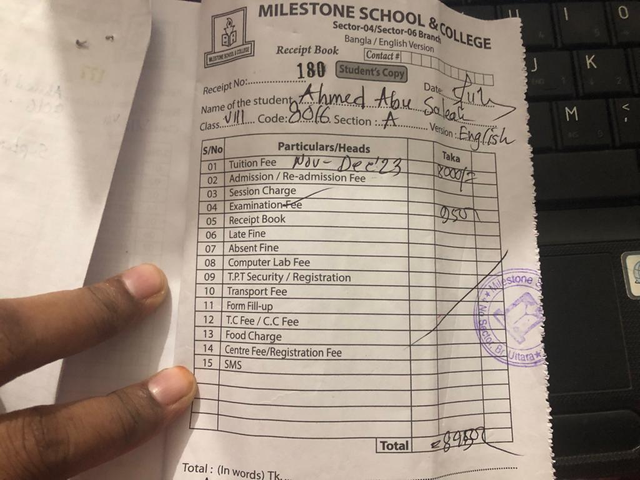 MILESTONE SCHOOL & COLLEGE
Sector-04/Sector-06 Branch
Bangla / English Version
MILESTONE SCHOOL & COLLEGE
Receipt Book Contact #
180 Student's Copy
Receipt No: Date:
Name of the student: Ahmed Abu Saleah
Class: VIII Code: 8016 Section: A Version: English
S/No Particulars/Heads Taka
01 Tuition Fee Nov - Dec'23 8000/=
02 Admission / Re-admission Fee
03 Session Charge
04 Examination Fee 950/
05 Receipt Book
06 Late Fine
07 Absent Fine
08 Computer Lab Fee
09 T.P.T Security / Registration
10 Transport Fee
11 Form Fill-up
12 T.C Fee / C.C Fee
13 Food Charge
14 Centre Fee/Registration Fee
15 SMS
Total =8950/
Total : (In words) Tk.
I O
J K
M